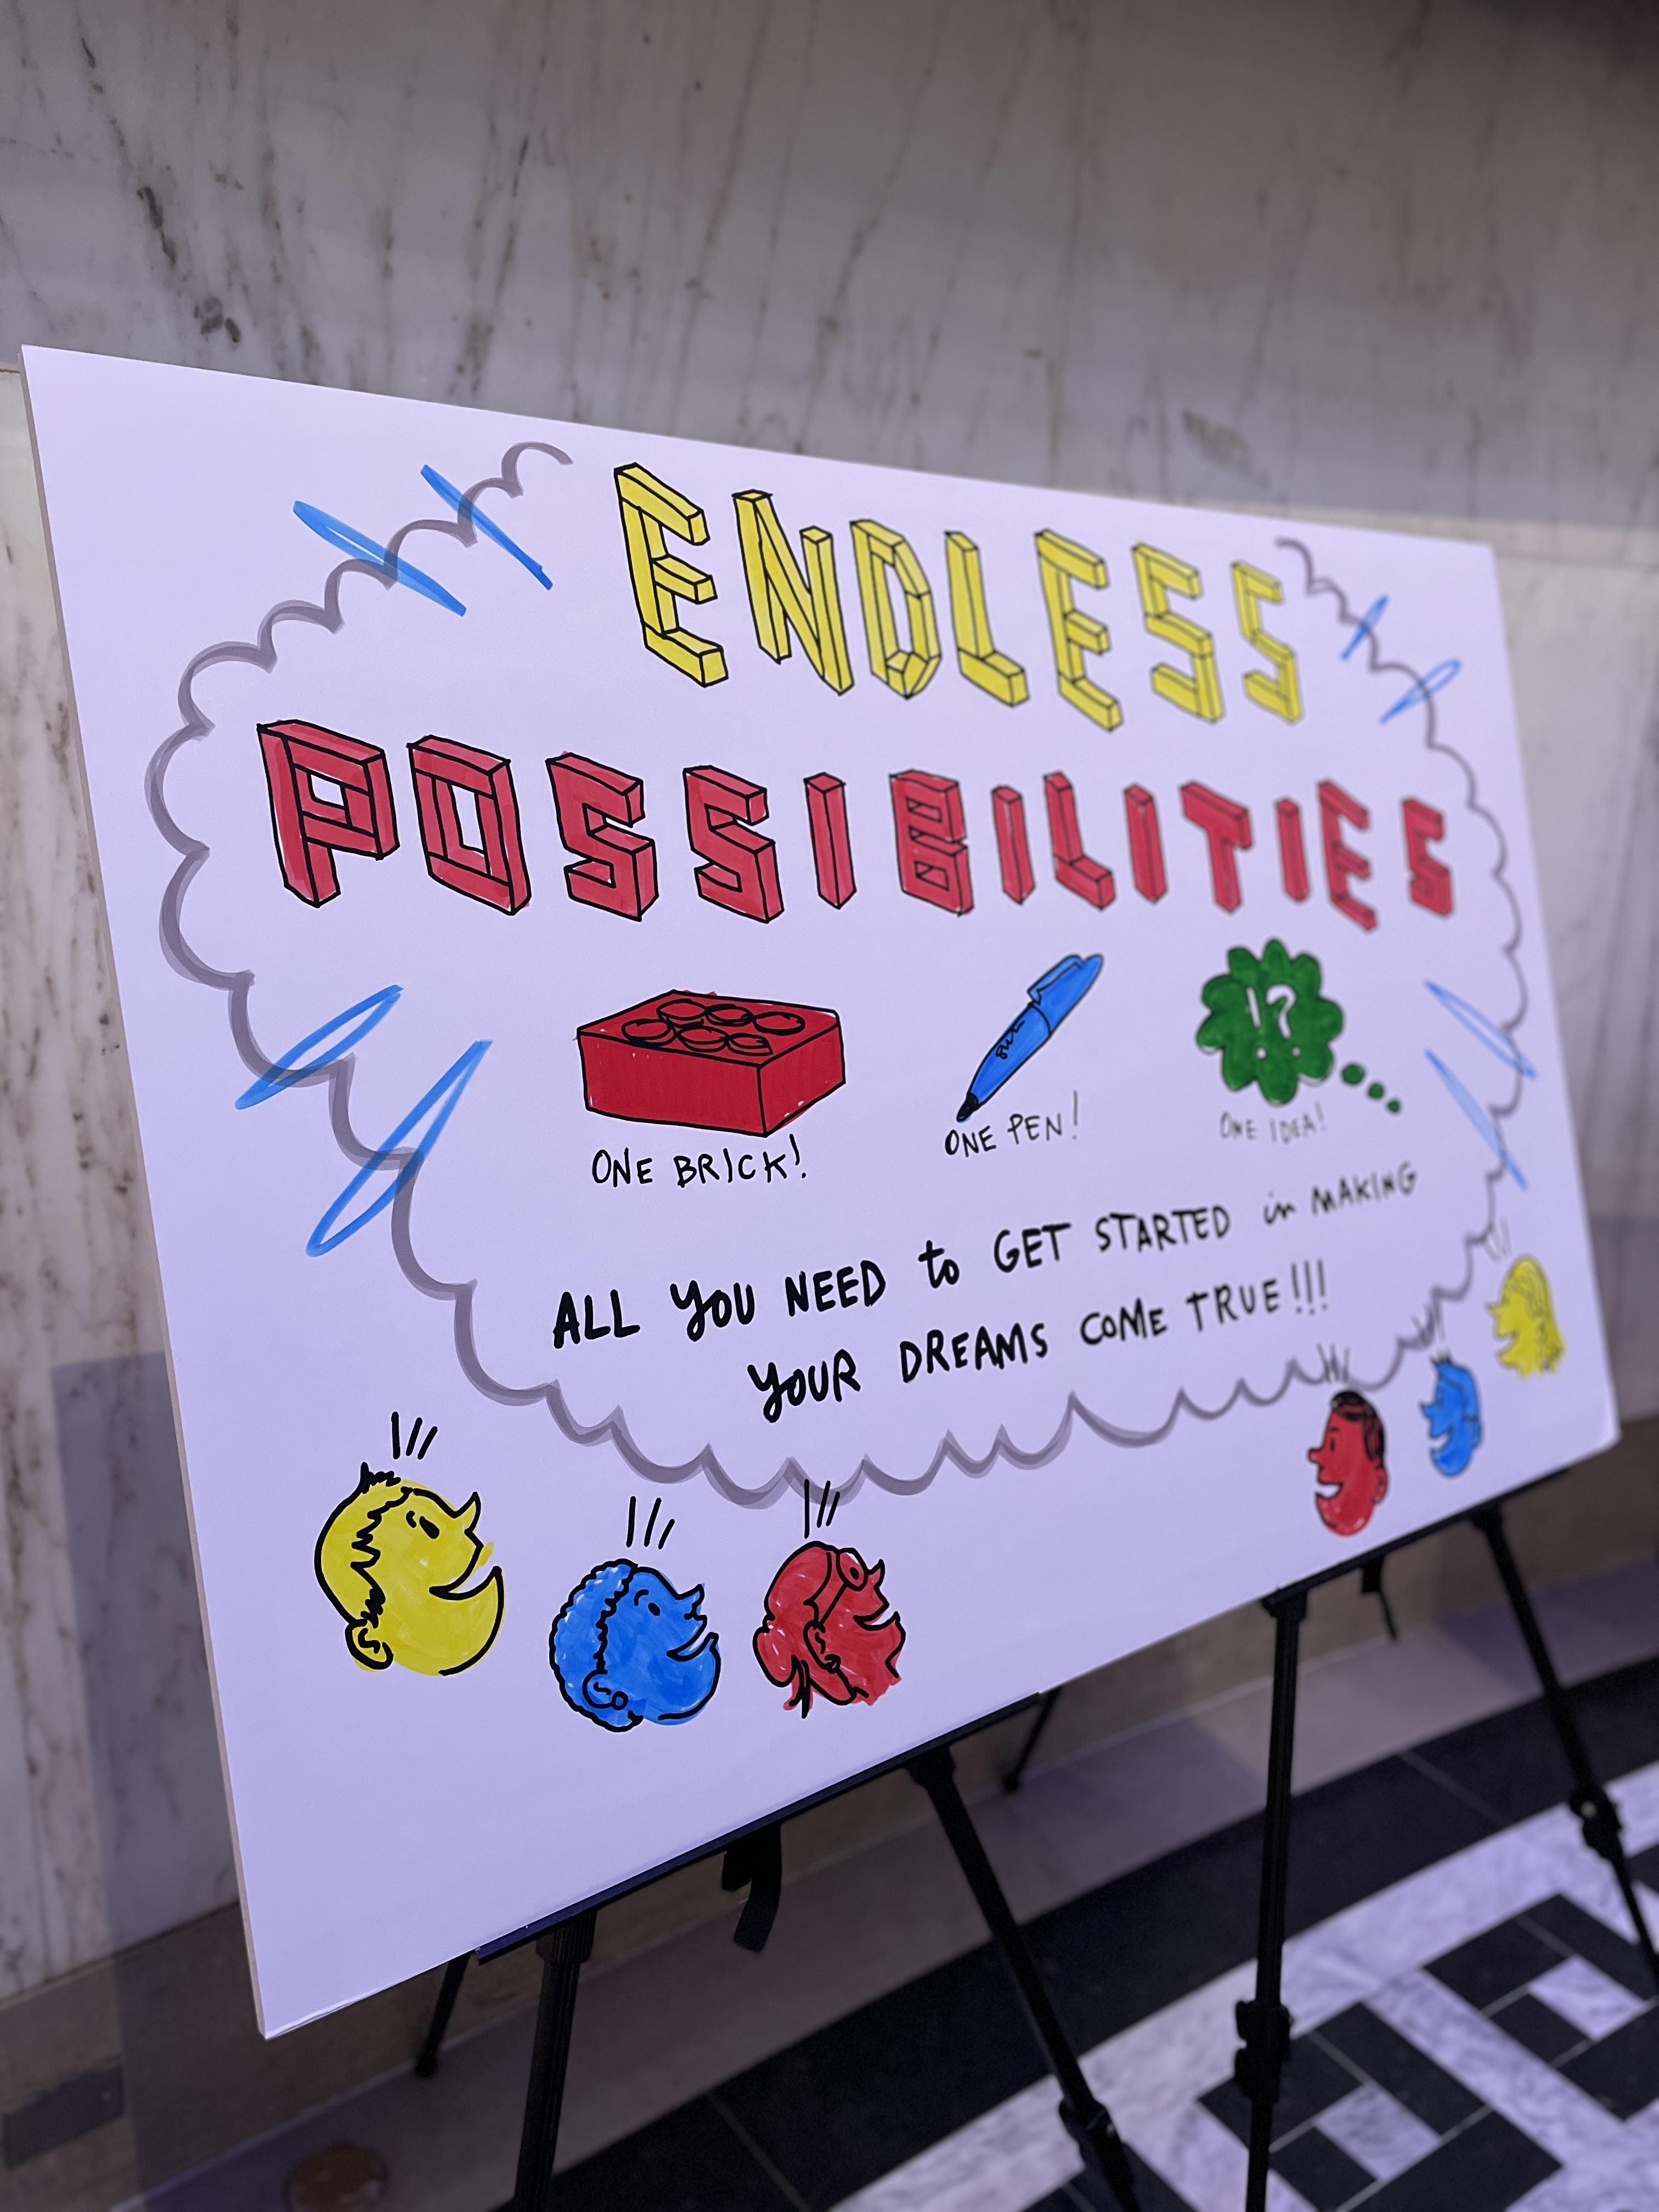 ENDLESS
POSSIBILITIES
!?
ONE BRICK!
ONE PEN!
ONE IDEA!
ALL YOU NEED to GET STARTED in MAKING
YOUR DREAMS COME TRUE!!!